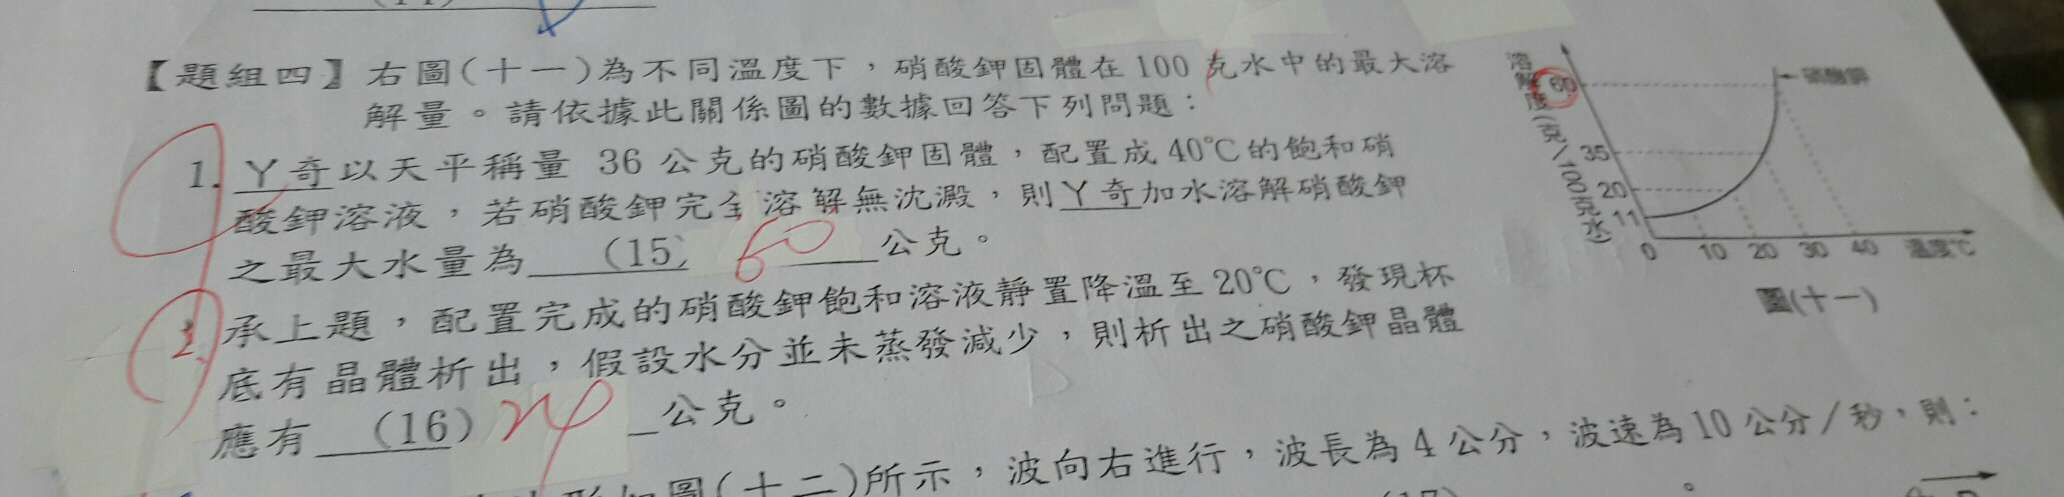 (14)
【題組四】右圖(十一)為不同溫度下,硝酸鉀固體在100克水中的最大溶
解量。請依據此關係圖的數據回答下列問題:
1. ㄚ奇以天平稱量 36 公克的硝酸鉀固體,配置成40℃的飽和硝
酸鉀溶液,若硝酸鉀完全溶解無沈澱,則ㄚ奇加水溶解硝酸鉀
之最大水量為 (15) 60 公克。
2. 承上題,配置完成的硝酸鉀飽和溶液靜置降溫至20℃,發現杯
底有晶體析出,假設水分並未蒸發減少,則析出之硝酸鉀晶體
應有 (16) 公克。
溶解度(克/100克水)
60
硝酸鉀
35
20
11
0 10 20 30 40 溫度℃
圖(十一)
圖(十二)所示,波向右進行,波長為4公分,波速為10公分/秒,則: